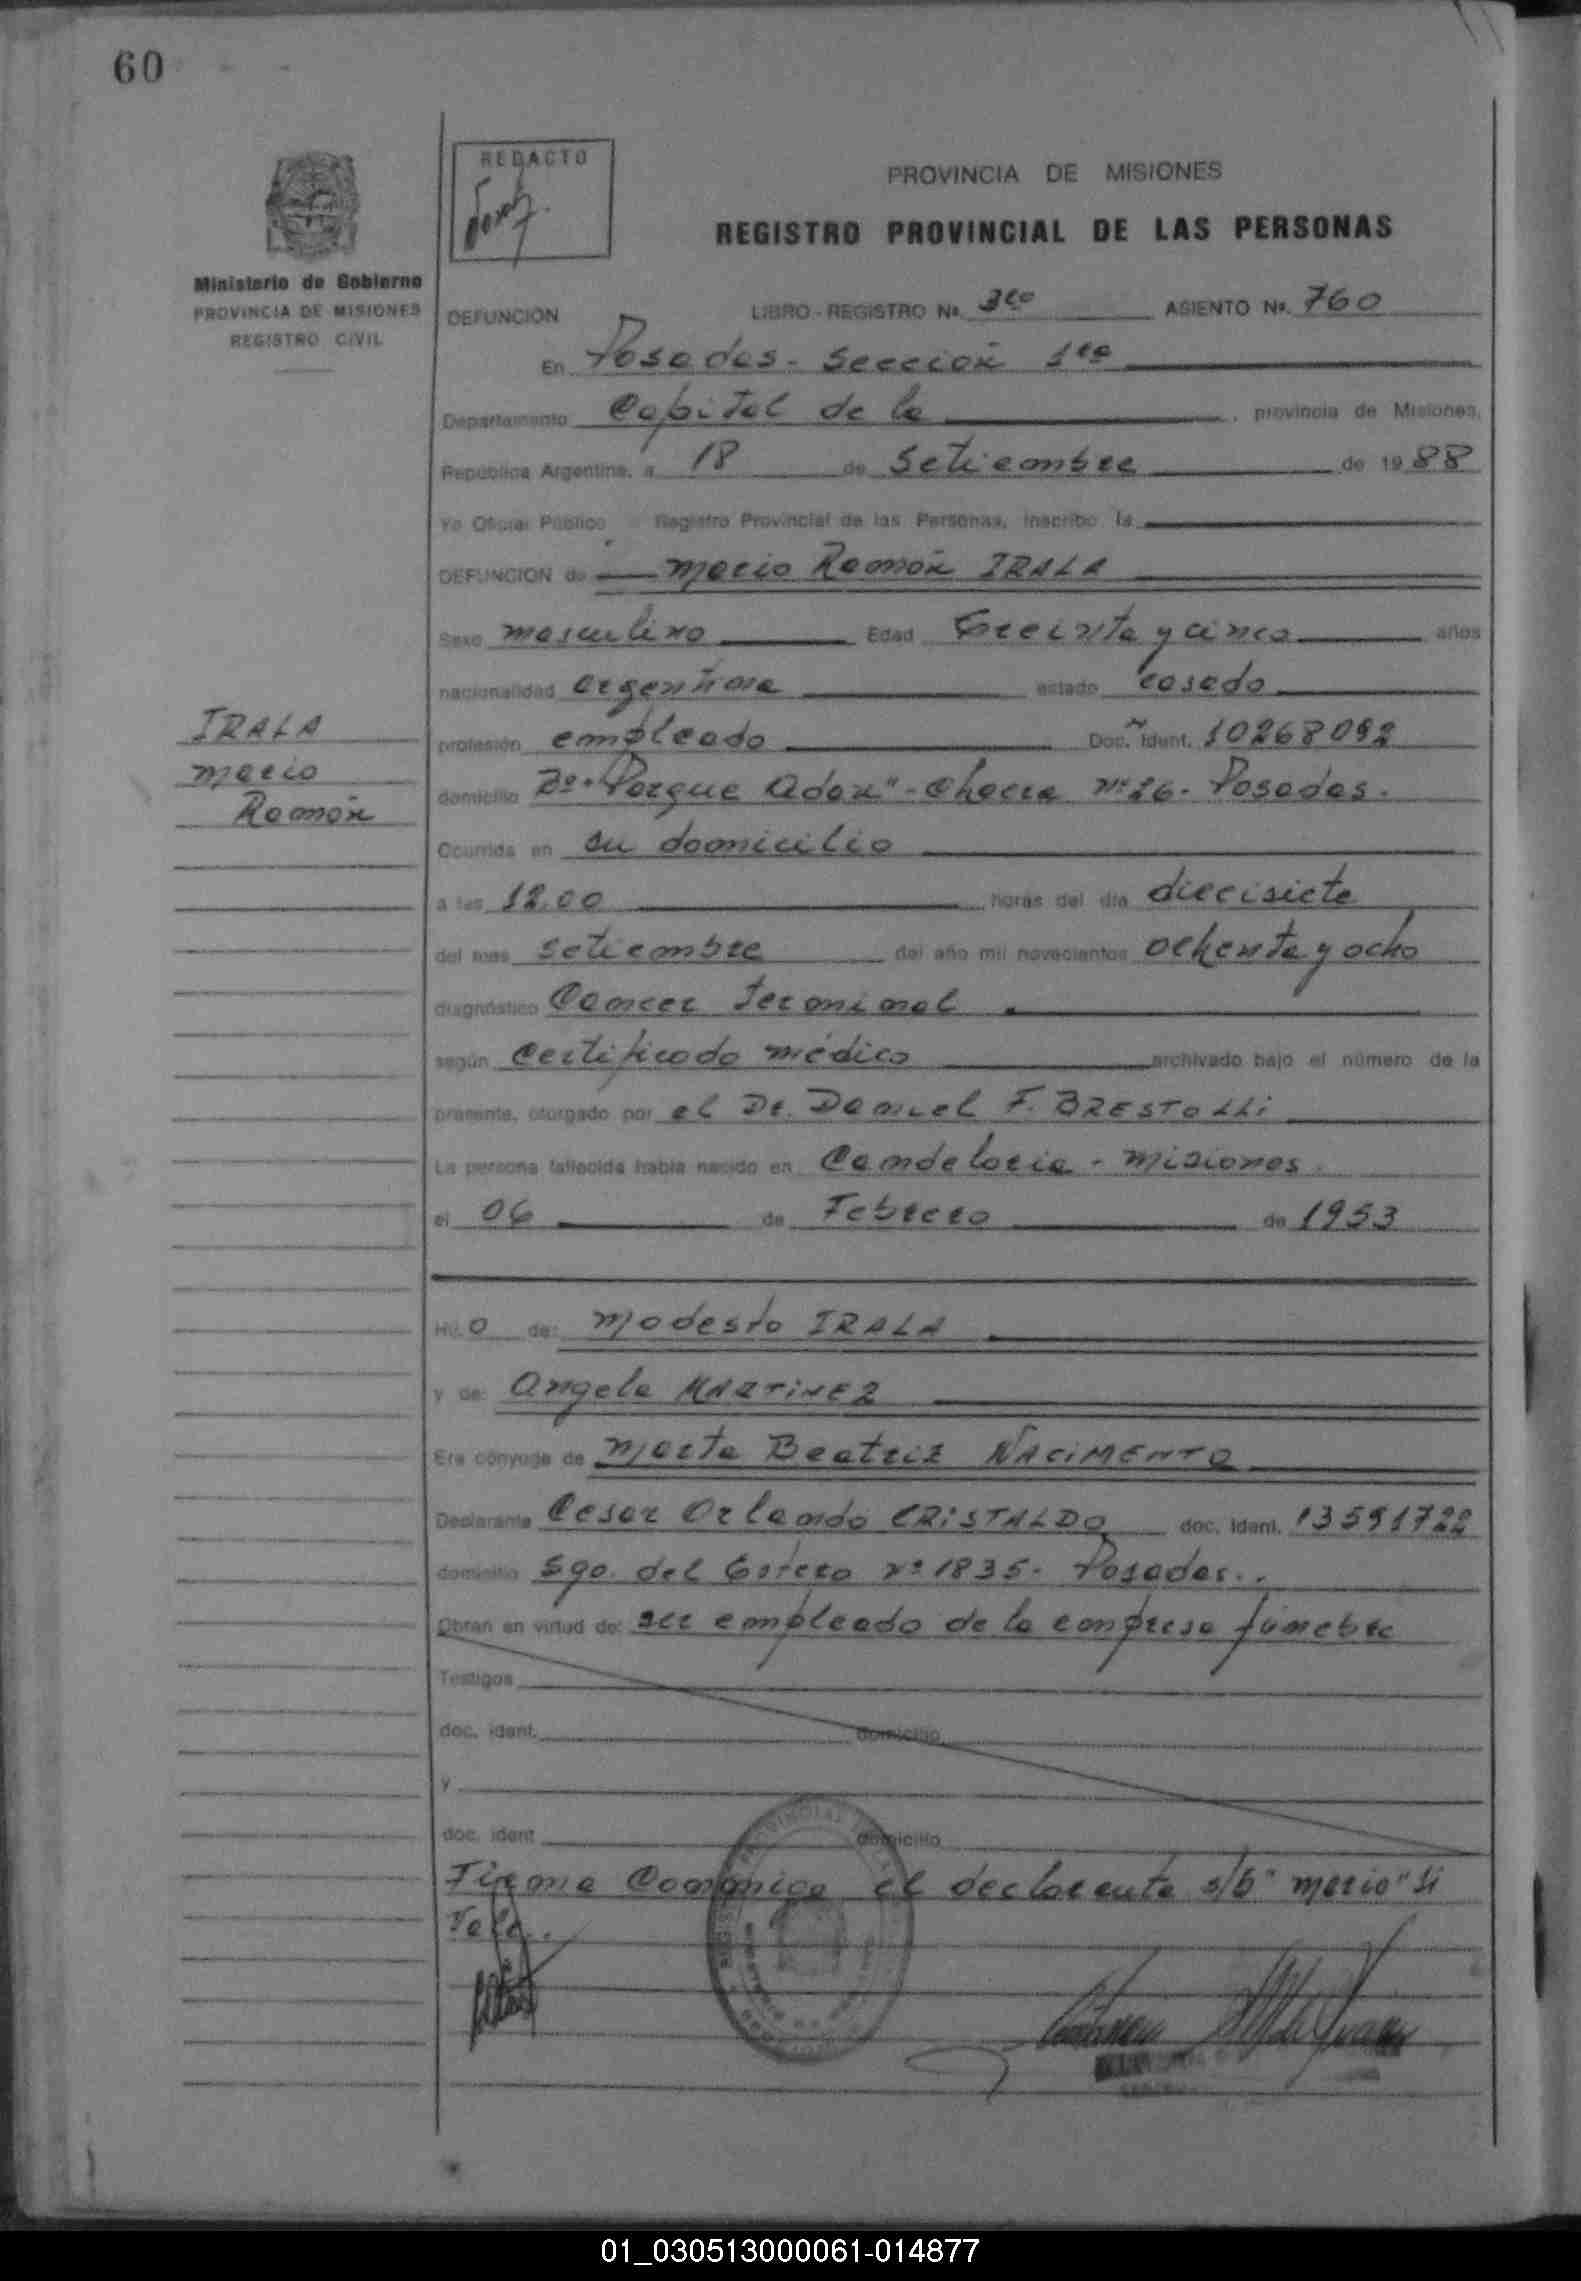 60
REDACTO
PROVINCIA DE MISIONES
REGISTRO PROVINCIAL DE LAS PERSONAS
Ministerio de Gobierno
PROVINCIA DE MISIONES
REGISTRO CIVIL
DEFUNCION LIBRO - REGISTRO Nº. 3ro ASIENTO Nº. 760
En Posadas - Sección 1ra
Departamento Capital de la , provincia de Misiones,
República Argentina, a 18 de Setiembre de 1988
Yo Oficial Público Registro Provincial de las Personas, inscribo la
DEFUNCION de Mario Ramón IRALA
Sexo masculino Edad treinta y cinco años
nacionalidad argentina estado casado
IRALA
Mario
Ramón
profesión empleado Doc. Ident. 10268092
domicilio Bº "Parque Adam" - Chacra Nº 26 - Posadas.
Ocurrida en su domicilio
a las 12.00 horas del día diecisiete
del mes setiembre del año mil novecientos ochenta y ocho
diagnóstico Cancer terminal
según Certificado médico archivado bajo el número de la
presente, otorgado por el Dr. Daniel F. BRESTOLLi
La persona fallecida había nacido en Candelaria - Misiones.
el 06 de Febrero de 1953
Hijo de: Modesto IRALA
y de: Angela MARTINEZ
Era cónyuge de Marta Beatriz NACIMENTO
Declarante Cesar Orlando CRISTALDO doc. ident. 13591722
domicilio Sgo. del Estero Nº 1835 - Posadas..
Obran en virtud de: ser empleado de la empresa fúnebre
Testigos
doc. ident. domicilio
y
doc. ident domicilio
Firma Conmigo el declarante s/b "Mario" Si
Vale..
01_030513000061-014877